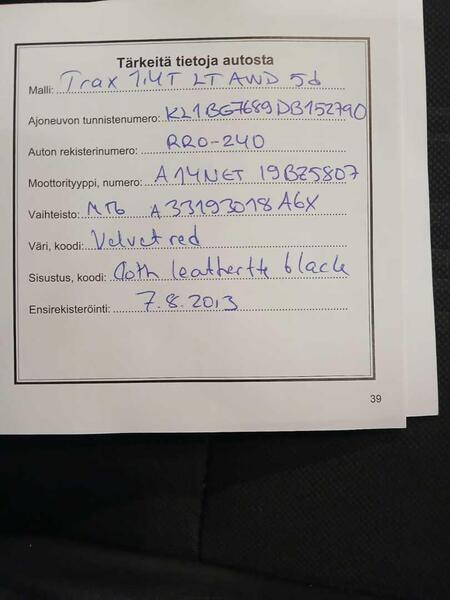 Tärkeitä tietoja autosta
Malli: Trax 1.4T LT AWD 5d
Ajoneuvon tunnistenumero: KL1BG7689DB152790
Auton rekisterinumero: RRO-240
Moottorityyppi, numero: A14NET 19BZ5807
Vaihteisto: MT6 A33193018A6X
Väri, koodi: Velvet red
Sisustus, koodi: Cloth leathertte black
Ensirekisteröinti: 7.8.2013
39